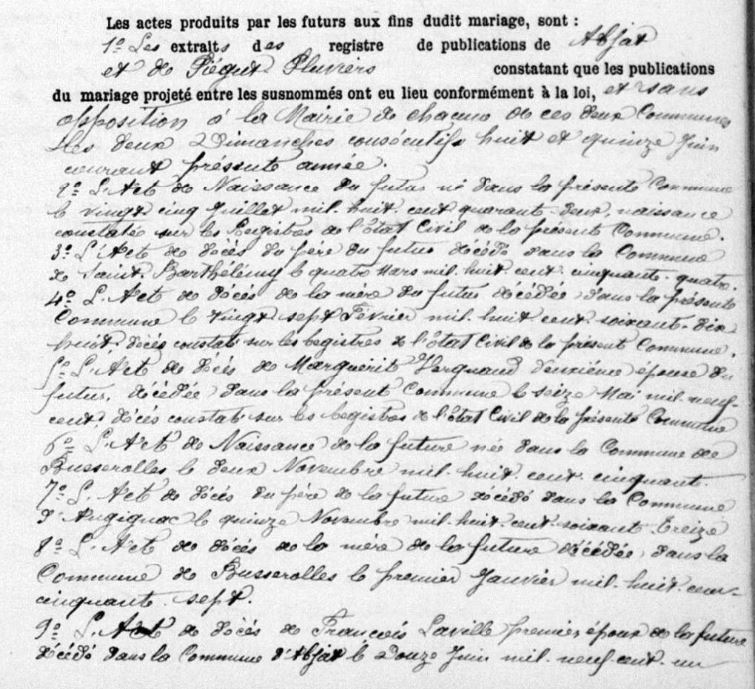 Les actes produits par les futurs aux fins dudit mariage, sont :
1º Les extraits des registre de publications de Abjat
et de Piégut Pluviers constatant que les publications
du mariage projeté entre les susnommés ont eu lieu conformément à la loi, et sans
opposition à la Mairie de chacune de ces deux Communes
les deux Dimanches consécutifs huit et quinze Juin
courant présente année.
2º L'Acte de Naissance du futur né dans la présente Commune
le vingt cinq Juillet mil huit cent quarante deux, naissance
constatée sur les Registres de l'État Civil de la présente Commune.
3º L'Acte de décès du père du futur décédé dans la Commune
de Saint Barthélemy le quatre Mars mil huit cent cinquante quatre.
4º L'Acte de décès de la mère du futur décédée dans la présente
Commune le vingt sept Février mil huit cent soixante dix
huit, décès constaté sur les registres de l'État Civil de la présente Commune.
5º L'Acte de décès de Marguerite Vergnaud deuxième épouse du
futur, décédée dans la présente Commune le seize Mai mil neuf
cent, décès constaté sur les registres de l'état Civil de la présente Commune
6º L'Acte de Naissance de la future née dans la Commune de
Busserolles le deux Novembre mil huit cent cinquante.
7º L'Acte de décès du père de la future décédé dans la Commune
d'Augignac le quinze Novembre mil huit cent soixante treize
8º L'Acte de décès de la mère de la future décédée dans la
Commune de Busserolles le premier Janvier mil huit cent
cinquante sept.
9º L'Acte de décès de François Laville premier époux de la future
décédé dans la Commune d'Abjat le Douze Juin mil neuf cent un